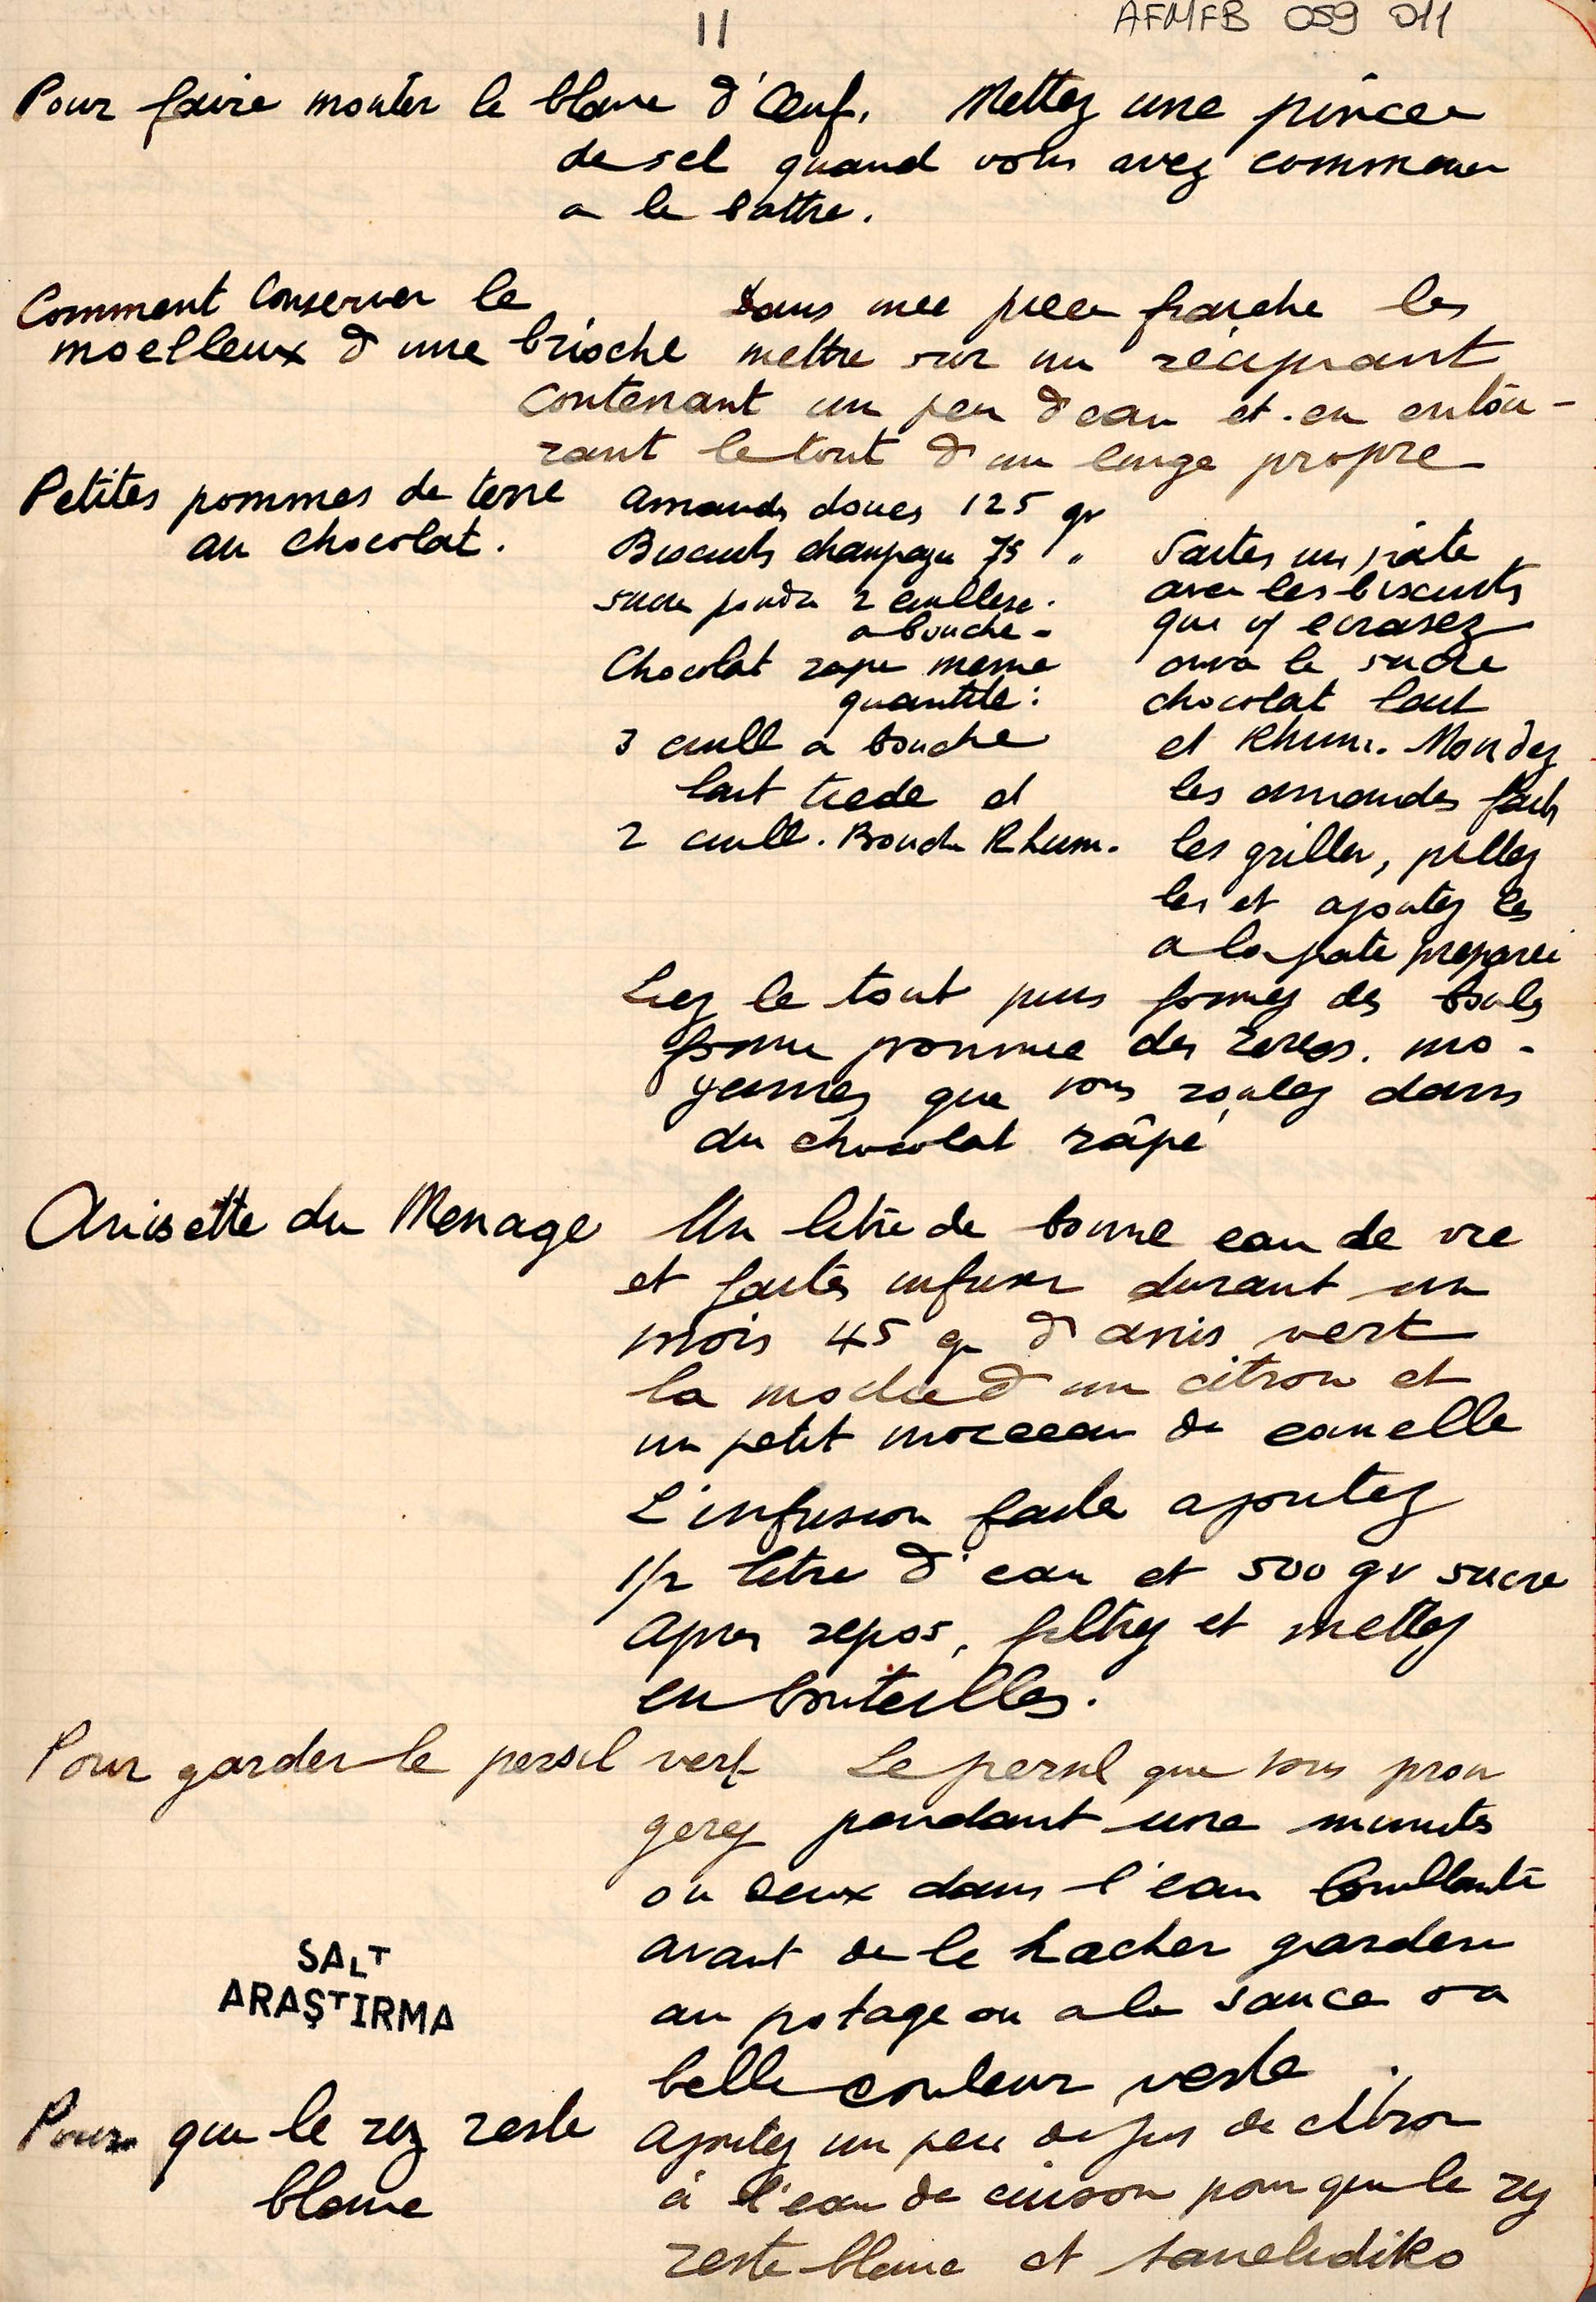 11
AFMFB 059 011
Pour faire monter le blanc d'Œuf. Mettez une pincee
de sel quand vous avez commencer
a le battre.
Comment Conserver le
moelleux d une brioche
Dans une piece fraiche les
mettre sur un récipiant
contenant un peu d eau et en entou-
rant le tout d un linge propre
Petites pommes de terre
au chocolat.
Amandes douces 125 gr
Biscuits champagne 75 "
sucre poudre 2 cuillere.
a bouche -
Chocolat rape meme
quantite :
3 cuill a bouche
lait tiede et
2 cuill. Bouche Rhum.
Faites un pate
avec les biscuits
que v/ ecrasez
le sucre
chocolat lait
et Rhum. Mondez
les amandes faites
les griller, pillez
les et ajoutez les
a la pate preparée
Liez le tout puis formez des boules
forme pomme des terres. mo-
yennes que vous roulez dans
du chocolat râpé
Anisette du Menage
Un litre de bonne eau de vie
et faites infuser durant un
mois 45 gr d anis vert
la d un citron et
un petit morceau de canelle
L'infusion faite ajoutez
1/2 litre d'eau et 500 gr sucre
Apres repos, filtrez et mettez
en bouteilles.
Pour garder le persil vert
Le persil que vous plon
gerez pendant une minutes
ou deux dans l'eau bouillante
avant de le hacher gardera
au potage ou a la sauce sa
belle couleur verte.
SALT
ARAŞTIRMA
Pour que le riz reste
blanc
Ajoutez un peu de jus de citron
à l'eau de cuisson pour que le riz
reste blanc et tanelediko